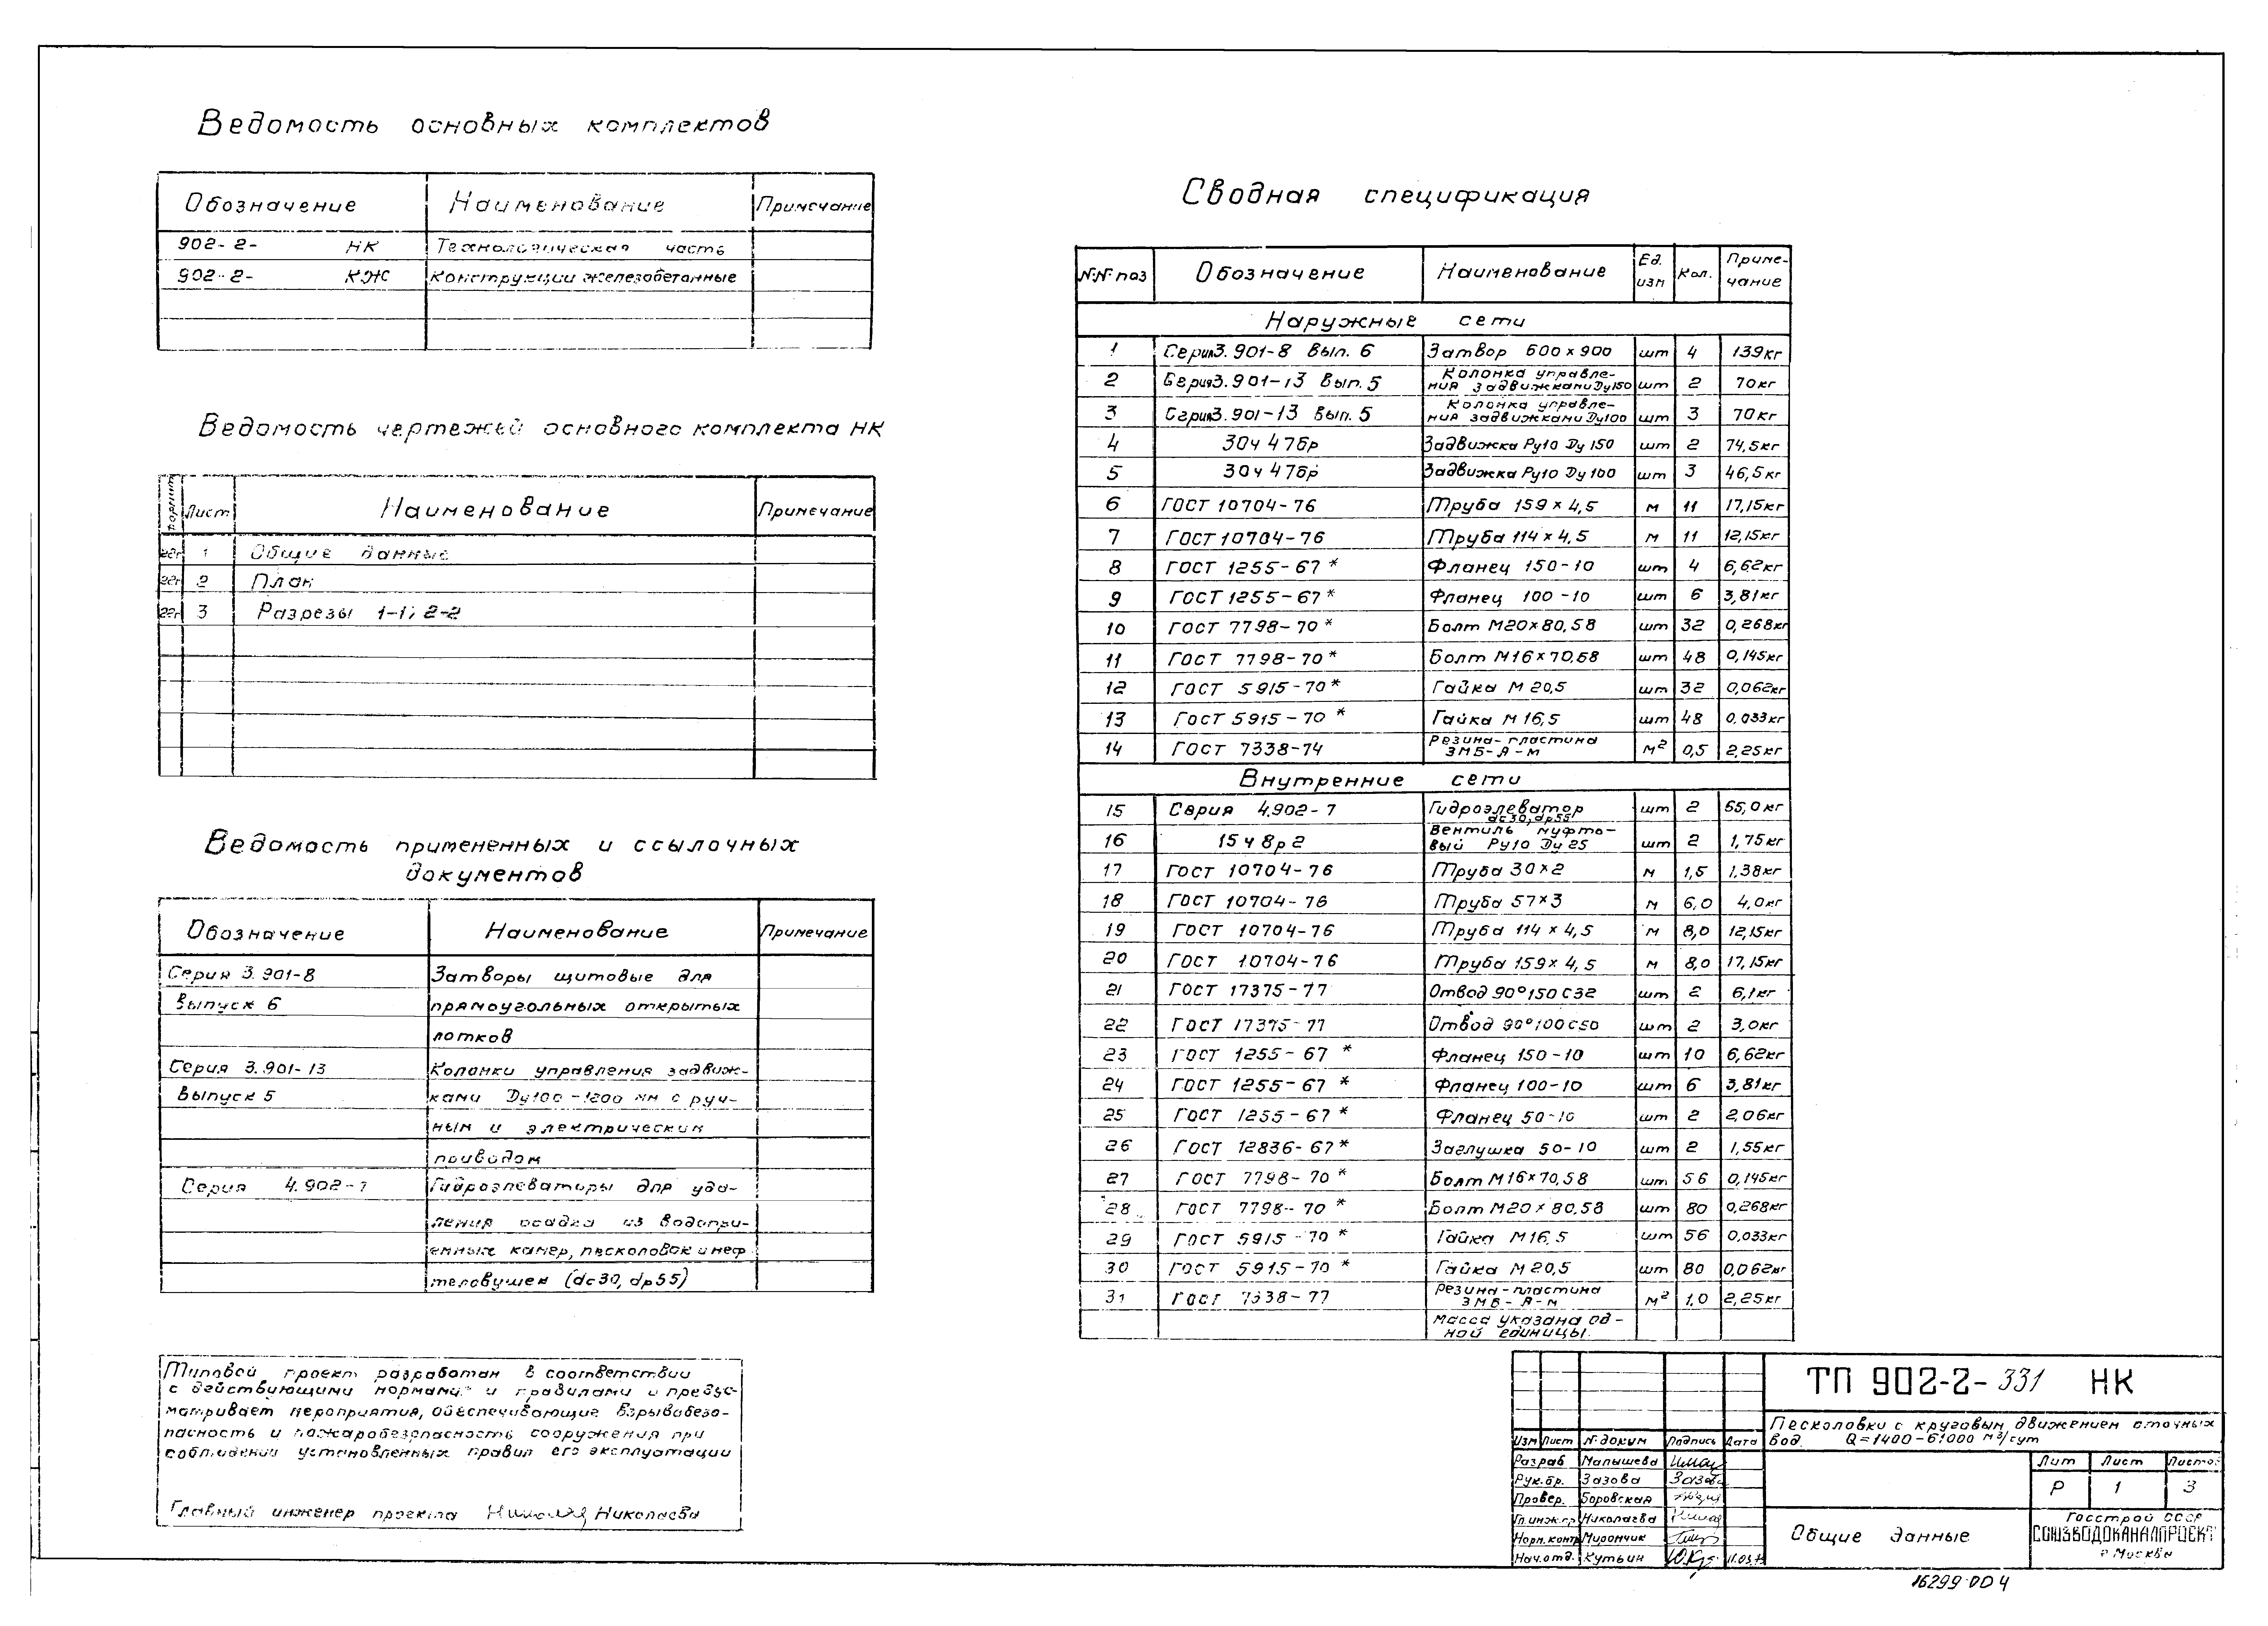 Ведомость основных комплектов
Обозначение Наименование Примечание
902-2- НК Технологическая часть
902-2- КЖ Конструкции железобетонные
Ведомость чертежей основного комплекта НК
Формат Лист Наименование Примечание
22г 1 Общие данные
22г 2 План
22г 3 Разрезы 1-1; 2-2
Ведомость примененных и ссылочных
документов
Обозначение Наименование Примечание
Серия 3.901-8 Затворы щитовые для
Выпуск 6 прямоугольных открытых
лотков
Серия 3.901-13 Колонки управления задвиж-
Выпуск 5 ками Ду100-1200 мм с руч-
ным и электрическим
приводом
Серия 4.902-7 Гидроэлеваторы для уда-
ления осадка из водопри-
емных камер, песколовок и неф
теловушек (dc30, dр55)
Типовой проект разработан в соответствии
с действующими нормами и правилами и предус-
матривает мероприятия, обеспечивающие взрывобезо-
пасность и пожаробезопасность сооружения при
соблюдении установленных правил его эксплуатации
Главный инженер проекта Николаева
Сводная спецификация
№№ поз Обозначение Наименование Ед. изм Кол. Приме-чание
Наружные сети
1 Серия 3.901-8 Вып. 6 Затвор 600×900 шт 4 139кг
2 Серия 3.901-13 Вып. 5 Колонка управле-ния задвижками Ду150 шт 2 70кг
3 Серия 3.901-13 Вып. 5 Колонка управле-ния задвижками Ду100 шт 3 70кг
4 30ч 47бр Задвижка Ру10 Ду 150 шт 2 74,5кг
5 30ч 47бр Задвижка Ру10 Ду 100 шт 3 46,5кг
6 ГОСТ 10704-76 Труба 159×4,5 м 11 17,15кг
7 ГОСТ 10704-76 Труба 114×4,5 м 11 12,15кг
8 ГОСТ 1255-67* Фланец 150-10 шт 4 6,62кг
9 ГОСТ 1255-67* Фланец 100-10 шт 6 3,81кг
10 ГОСТ 7798-70* Болт М20×80,58 шт 32 0,268кг
11 ГОСТ 7798-70* Болт М16×70,58 шт 48 0,145кг
12 ГОСТ 5915-70* Гайка М 20,5 шт 32 0,062кг
13 ГОСТ 5915-70* Гайка М 16,5 шт 48 0,033кг
14 ГОСТ 7338-74 Резина-пластина 3МБ-А-м м² 0,5 2,25кг
Внутренние сети
15 Серия 4.902-7 Гидроэлеватор dc30, dр55 шт 2 55,0кг
16 15ч 8р2 Вентиль муфто-вый Ру10 Ду 25 шт 2 1,75кг
17 ГОСТ 10704-76 Труба 30×2 м 1,5 1,38кг
18 ГОСТ 10704-76 Труба 57×3 м 6,0 4,0кг
19 ГОСТ 10704-76 Труба 114×4,5 м 8,0 12,15кг
20 ГОСТ 10704-76 Труба 159×4,5 м 8,0 17,15кг
21 ГОСТ 17375-77 Отвод 90°150 С32 шт 2 6,1кг
22 ГОСТ 17375-77 Отвод 90°100 С50 шт 2 3,0кг
23 ГОСТ 1255-67* Фланец 150-10 шт 10 6,62кг
24 ГОСТ 1255-67* Фланец 100-10 шт 6 3,81кг
25 ГОСТ 1255-67* Фланец 50-10 шт 2 2,06кг
26 ГОСТ 12836-67* Заглушка 50-10 шт 2 1,55кг
27 ГОСТ 7798-70* Болт М16×70,58 шт 56 0,145кг
28 ГОСТ 7798-70* Болт М20×80,58 шт 80 0,268кг
29 ГОСТ 5915-70* Гайка М16,5 шт 56 0,033кг
30 ГОСТ 5915-70* Гайка М20,5 шт 80 0,062кг
31 ГОСТ 7338-77 Резина-пластина 3МБ-А-м м² 1,0 2,25кг
Масса указана од-ной единицы.
ТП 902-2-331 НК
Песколовки с круговым движением сточных
вод. Q=1400-61000 м³/сут
Изм Лист № докум Подпись Дата
Разраб Малышева
Рук.бр. Зазова Зазова
Провер. Боровская
Гл.инж.пр Николаева
Норм.контр Мирончик
Нач.отд. Кутьин
Лит Лист Листов
Р 1 3
Общие данные
Госстрой СССР
СОЮЗВОДОКАНАЛПРОЕКТ
г Москва
16299-00 4